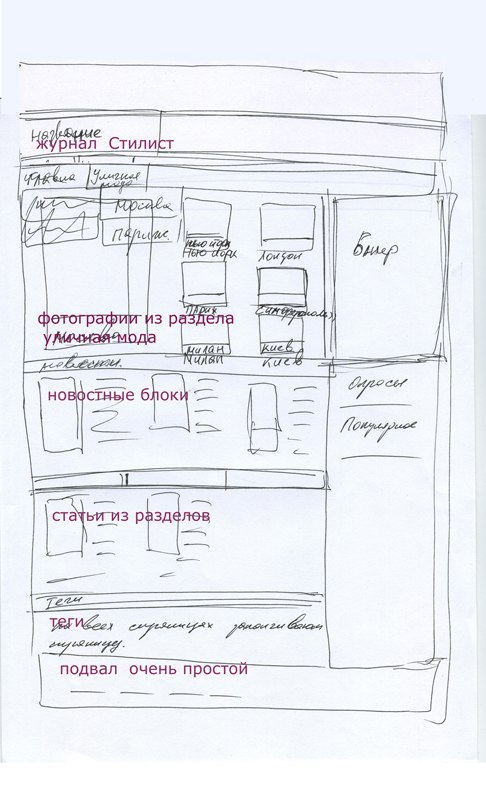 название
журнал Стилист
Уличная
мода
Москва
Париж
Нью Йорк
Лондон
Банер
Париж
Симферополь
фотографии из раздела
уличная мода
Милан
Киев
Милан
Киев
новости
Опросы
новостные блоки
Популярное
статьи из разделов
Теги
теги
на всех страницах
страницу.
подвал очень простой